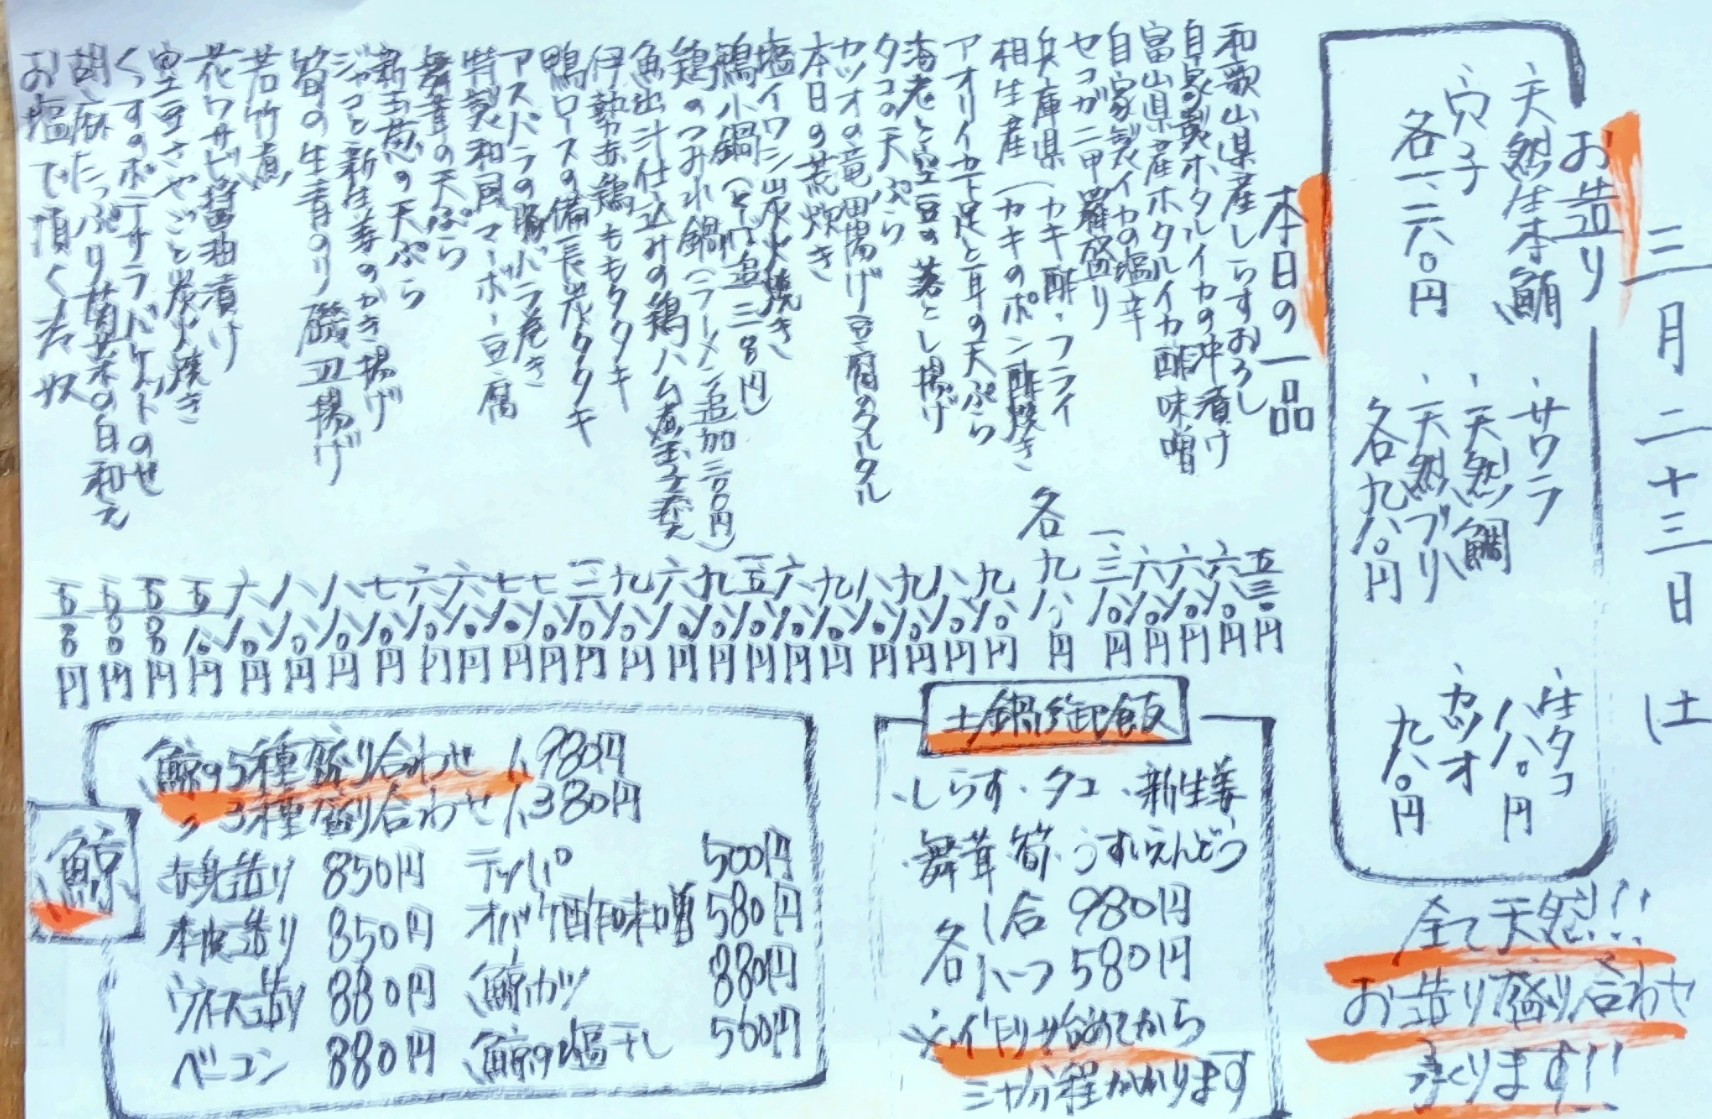 三月二十三日 土
お造り
・天然生本鮪
・穴子
各一、二八〇円
・サワラ
・天然鯛
・天然ブリ
各九八〇円
・生タコ
八八〇円
・カツオ
九八〇円
全て天然!!!
お造り盛り合わせ
承ります!!
本日の一品
和歌山県産しらすおろし 五三〇円
自家製ホタルイカの沖漬け 六八〇円
富山県産ホタルイカ酢味噌 六八〇円
自家製イカの塩辛 六八〇円
セコガニ甲羅盛り 一、三八〇円
兵庫県 (カキ酢・フライ
相生産 (カキのポン酢焼き 各九八〇円
アオリイカ下足と耳の天ぷら 九八〇円
海老と空豆の落とし揚げ 八八〇円
タコの天ぷら 九八〇円
カツオの竜田揚げ豆腐のタルタル 八八〇円
本日の荒炊き 九八〇円
塩イワシ炭火焼き 六八〇円
鴨小鍋 一、五八〇円
鶏のつみれ鍋(ラーメン追加三〇〇円) 九八〇円
魚出汁仕込みの鶏ハム煮玉子添え 六八〇円
伊勢赤鶏ももタタキ 九八〇円
鴨ロースの備長炭タタキ 一、三八〇円
アスパラの豚バラ巻き 七八〇円
特製和風マーボー豆腐 七八〇円
舞茸の天ぷら 六八〇円
新玉葱の天ぷら 六八〇円
ジャコと新生姜のかき揚げ 七八〇円
筍の生青のり磯辺揚げ 八八〇円
若竹煮 八八〇円
花ワサビ醤油漬け 六八〇円
空豆さやごと炭火焼き 五八〇円
くずのポテサラバケットのせ 五〇〇円
胡麻たっぷり菊菜の白和え 五〇〇円
お塩で頂く冷奴 五〇〇円
土鍋御飯
・しらす・タコ・新生姜
・舞茸・筍・うすいえんどう
各1合 980円
各ハーフ 580円
※作り始めてから
三十分程かかります
鯨
鯨の5種盛り合わせ 1,980円
〃 3種盛り合わせ 1,380円
赤身造り 850円 テッパ 500円
本皮造り 850円 オバケ酢味噌 580円
ウネス造り 880円 鯨カツ 880円
ベーコン 880円 鯨の塩干し 560円